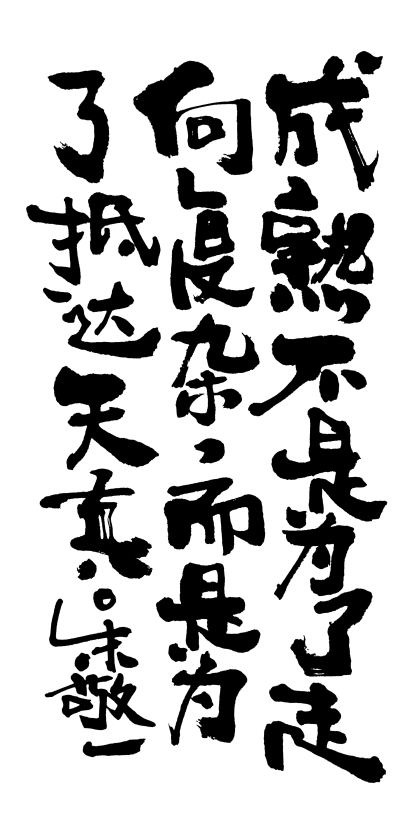 成熟不是为了走
向复杂、而是为
了抵达天真。朱敬一